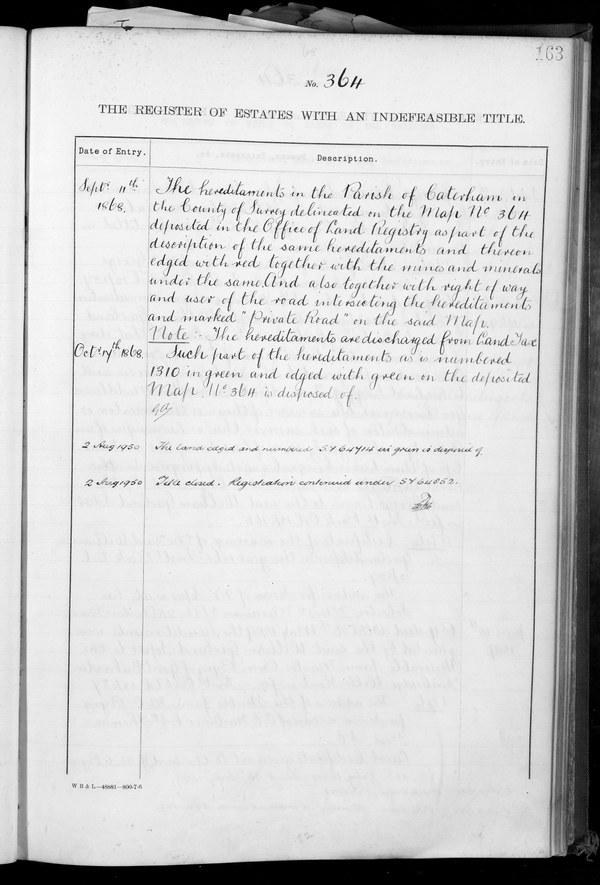 163
No. 364
THE REGISTER OF ESTATES WITH AN INDEFEASIBLE TITLE.
Date of Entry.
Description.
Septr. 11th 1868.
The hereditaments in the Parish of Caterham in
the County of Surrey delineated on the Map No 364
deposited in the Office of Land Registry as part of the
description of the same hereditaments and thereon
edged with red together with the mines and minerals
under the same. And also together with right of way
and user of the road intersecting the hereditaments
and marked "Private Road" on the said Map.
Note:- The hereditaments are discharged from Land Tax
Octr. 17th 1868.
Such part of the hereditaments as is numbered
1310 in green and edged with green on the deposited
Map No 364 is disposed of.
2 Aug 1950
The land edged and numbered SY64714 in green is disposed of.
2 Aug 1950
Title closed. Registration continued under SY64852.
W B & L—48881—800-7-6